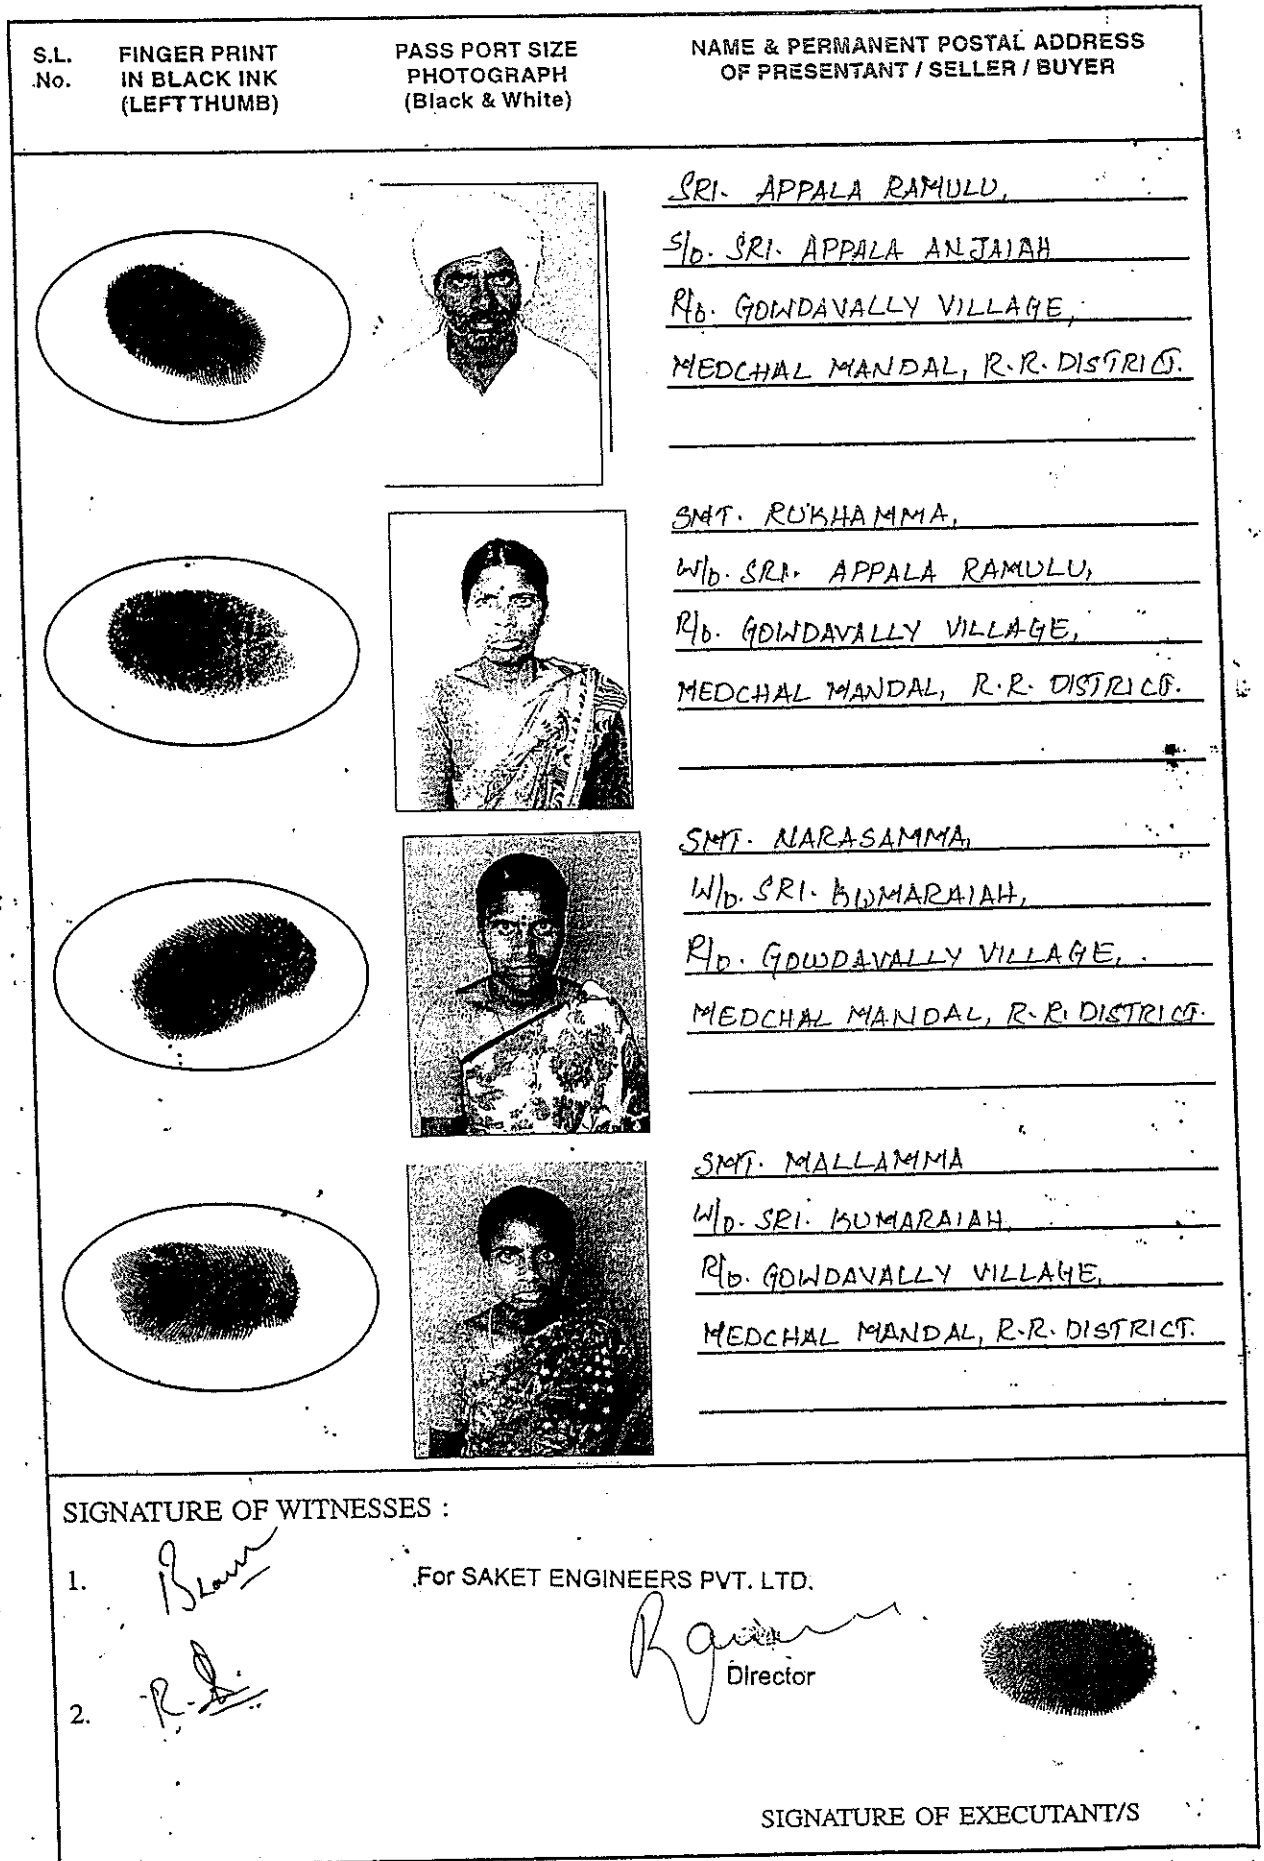 S.L. No. FINGER PRINT IN BLACK INK (LEFT THUMB) PASS PORT SIZE PHOTOGRAPH (Black & White) NAME & PERMANENT POSTAL ADDRESS OF PRESENTANT / SELLER / BUYER
SRI. APPALA RAMULU,
S/o. SRI. APPALA ANJAIAH
R/o. GOWDAVALLY VILLAGE,
MEDCHAL MANDAL, R.R. DISTRICT.
SMT. RUKHAMMA,
W/o. SRI. APPALA RAMULU,
R/o. GOWDAVALLY VILLAGE,
MEDCHAL MANDAL, R.R. DISTRICT.
SMT. NARASAMMA,
W/o. SRI. KUMARAIAH,
R/o. GOWDAVALLY VILLAGE,
MEDCHAL MANDAL, R.R. DISTRICT.
SMT. MALLAMMA
W/o. SRI. KUMARAIAH,
R/o. GOWDAVALLY VILLAGE,
MEDCHAL MANDAL, R.R. DISTRICT.
SIGNATURE OF WITNESSES :
1.
For SAKET ENGINEERS PVT. LTD.
Director
2.
SIGNATURE OF EXECUTANT/S